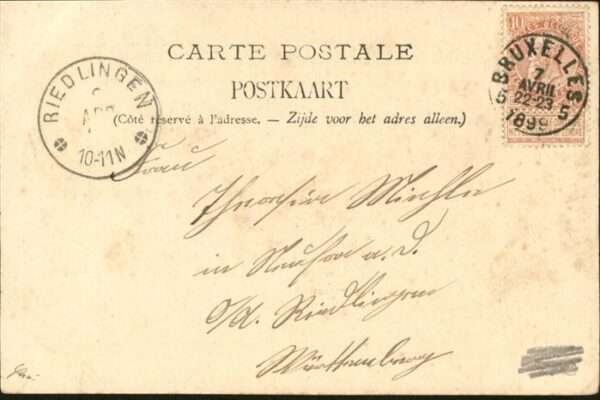 CARTE POSTALE
POSTKAART
(Côté réservé à l'adresse. — Zijde voor het adres alleen.)
10
BRUXELLES
7
AVRIL
5 22-23 5
1899
RIEDLINGEN
10-11N
Frau
in
a. d.
o/d. Riedlingen
Württemberg